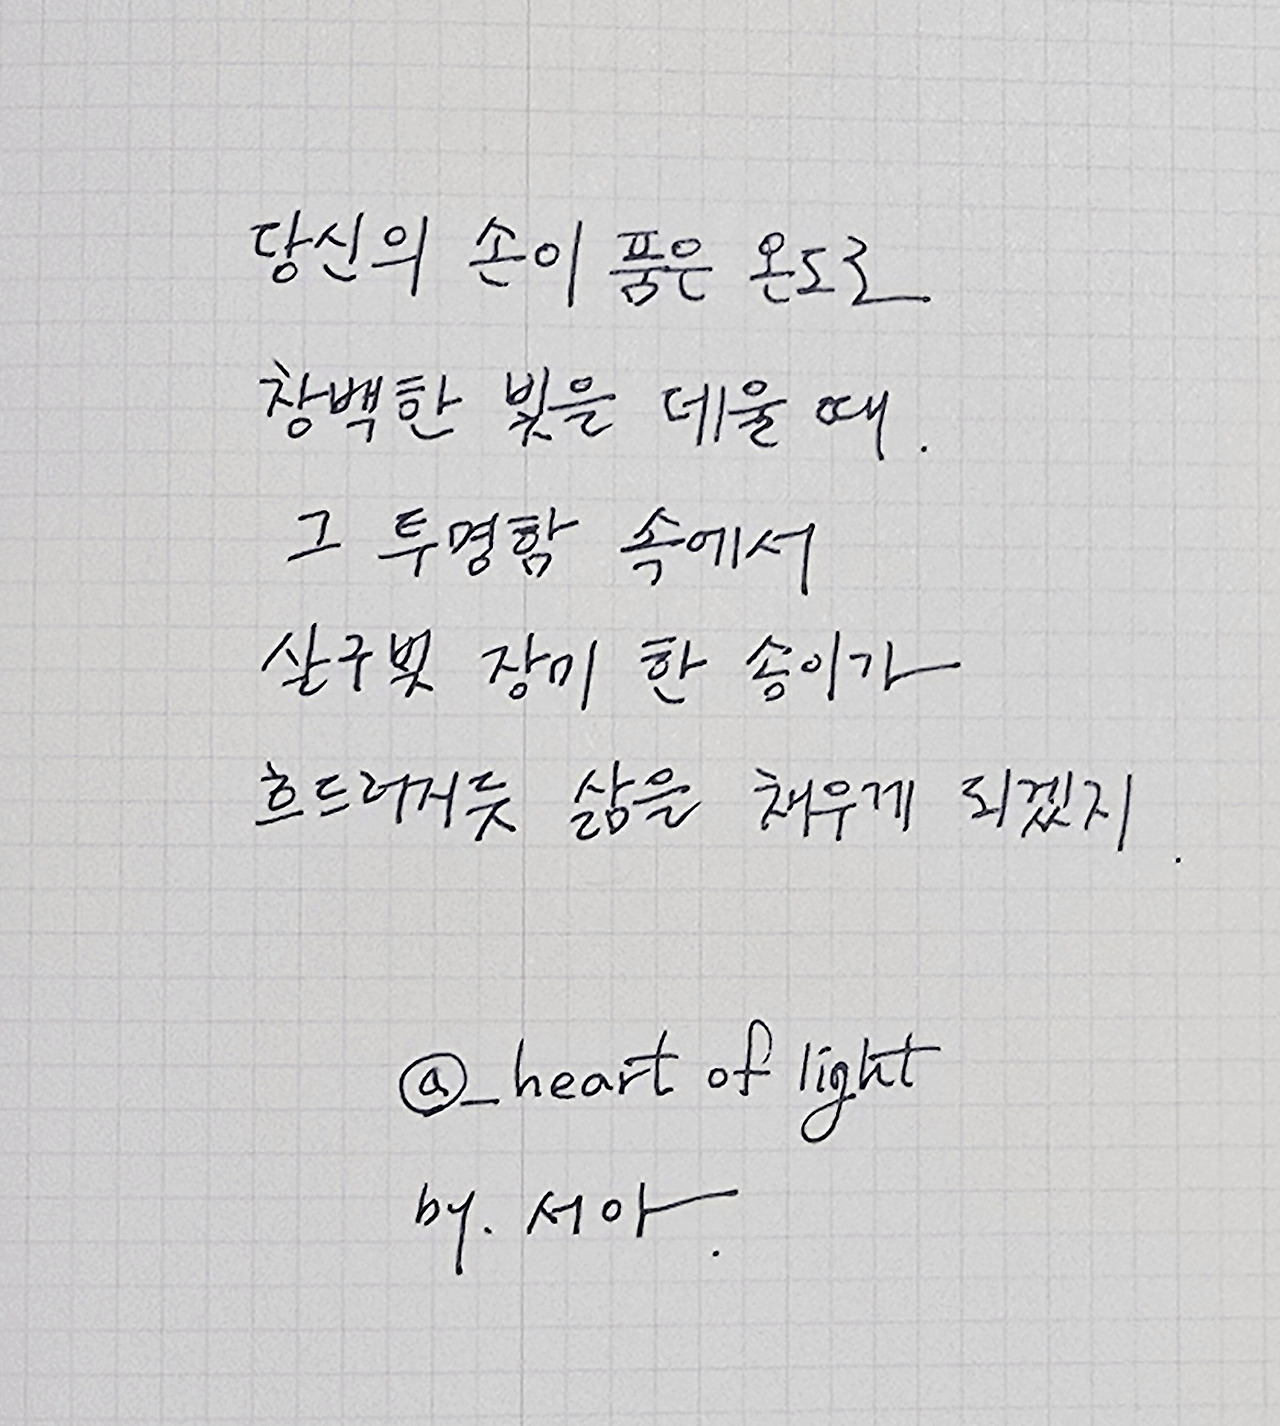 당신의 손이 품은 온도로
창백한 빛을 데울 때.
그 투명함 속에서
살구빛 장미 한 송이가
흐드러지듯 삶을 채우게 되겠지.
@_heart of light
by. 서아.